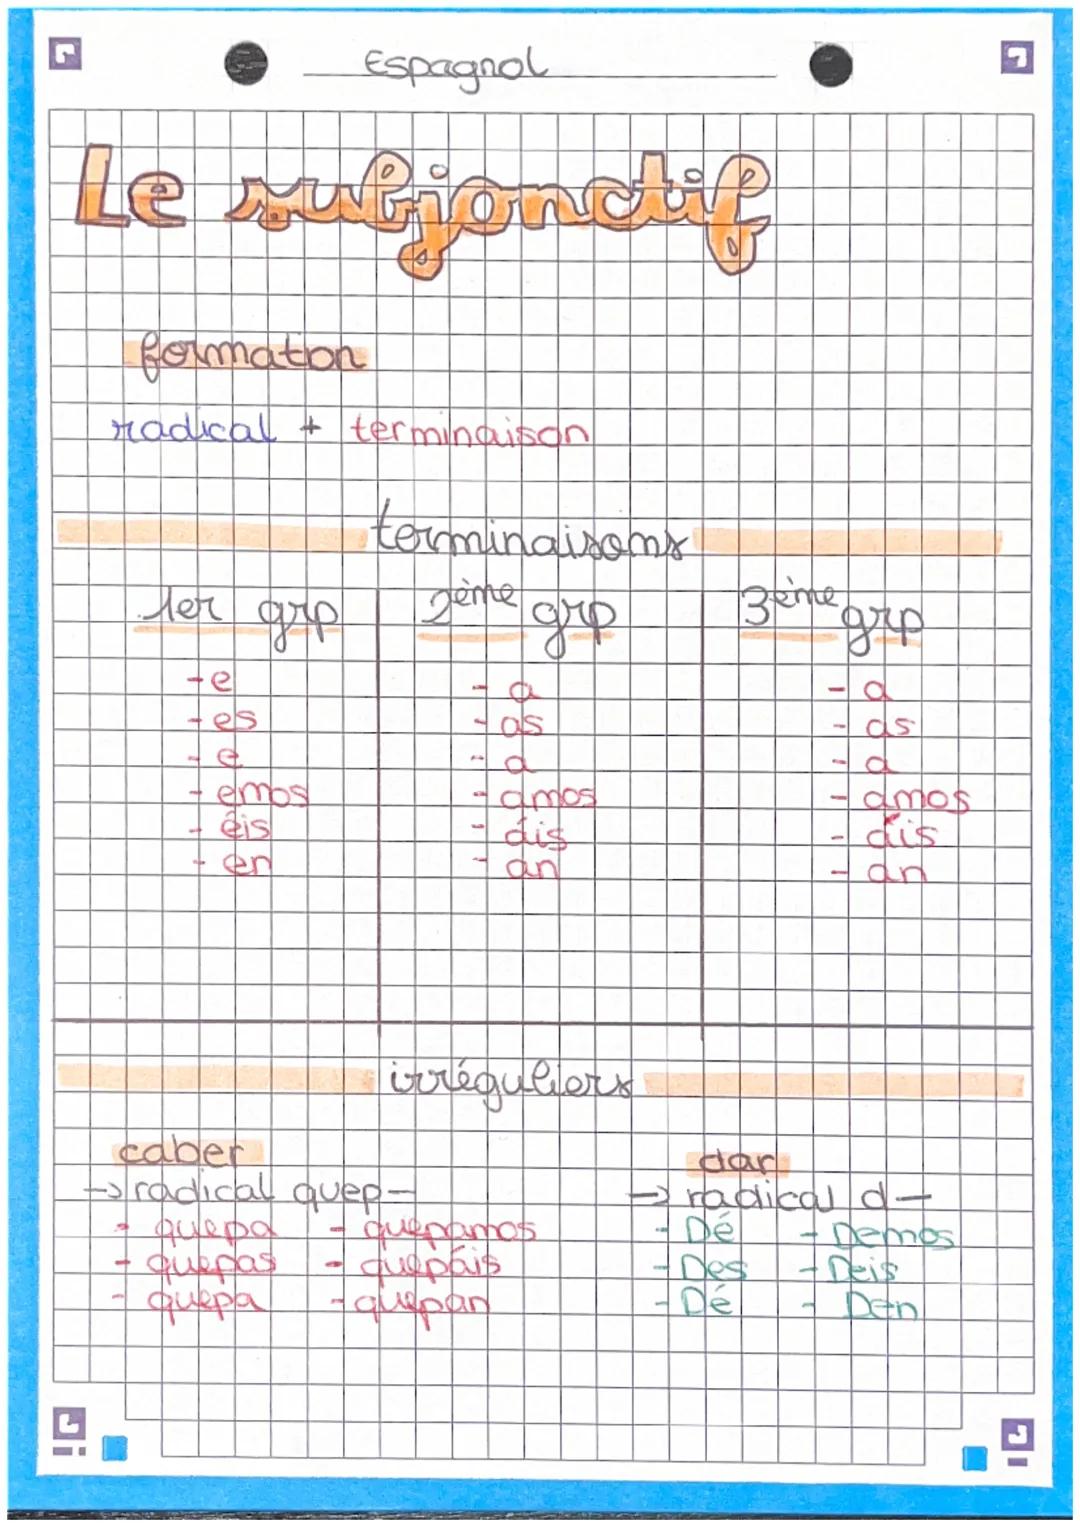 Espagnol
Le subjonctif
formaton
radical + terminaison
terminaisons
1er grp 2ème grp 3ème grp
-e - a - a
- es - as - as
- e - a - a
- emos - amos - amos
- éis - áis - áis
- en - an - an
irréguliers
caber dar
→ radical quep- → radical d-
- quepa - quepamos - Dé - Demos
- quepas - quepáis - Des - Deis
- quepa - quepan - Dé - Den